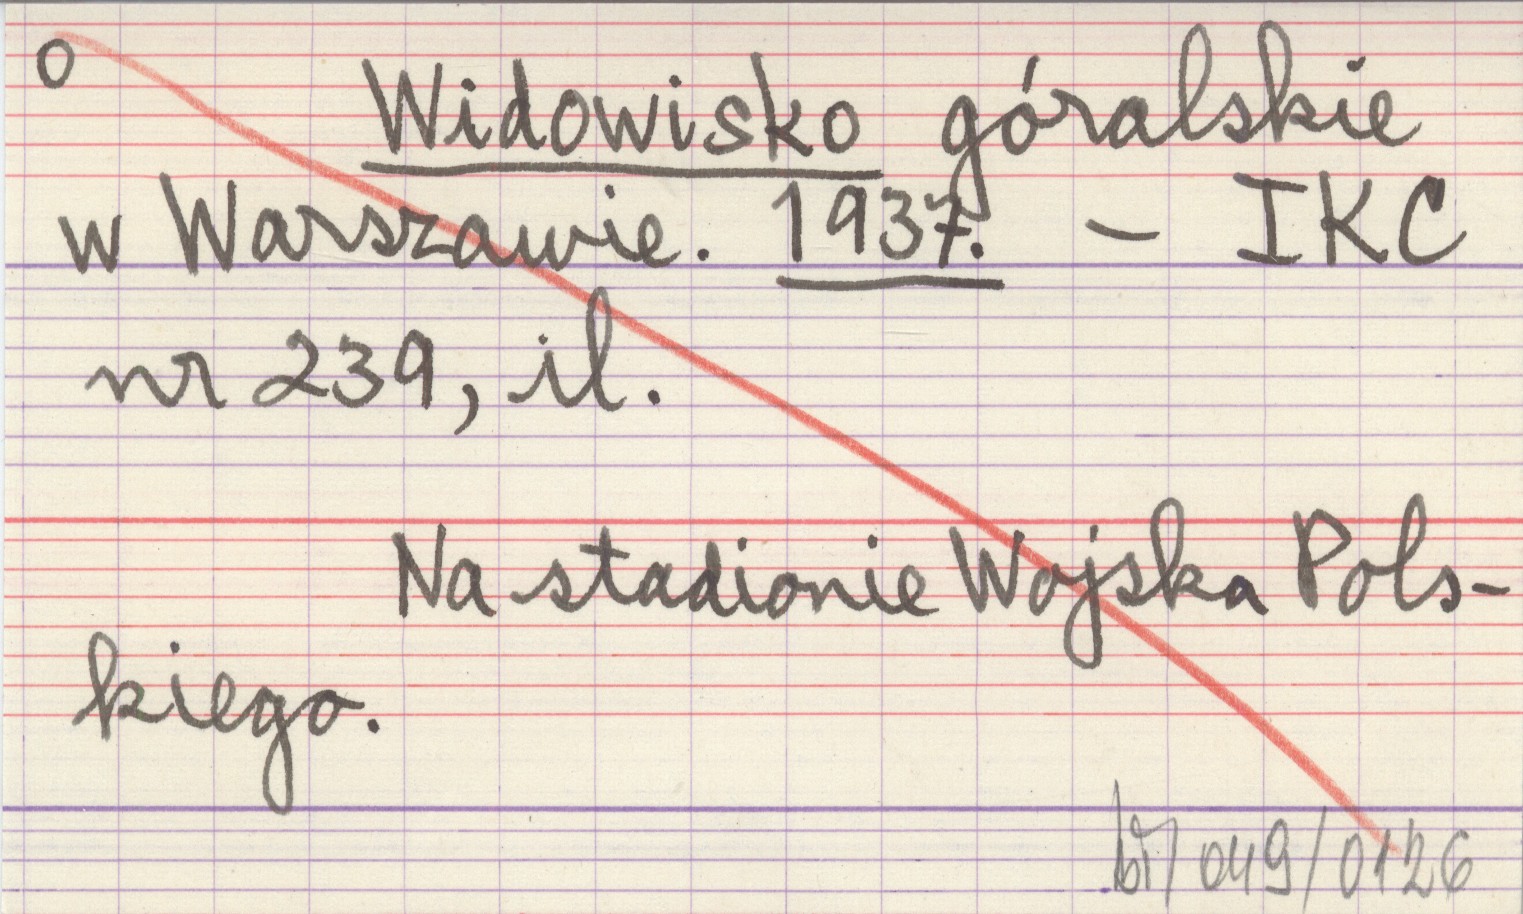 o
Widowisko góralskie
w Warszawie. 1937. - IKC
nr 239, il.
Na stadionie Wojska Pols-
kiego.
049/0126